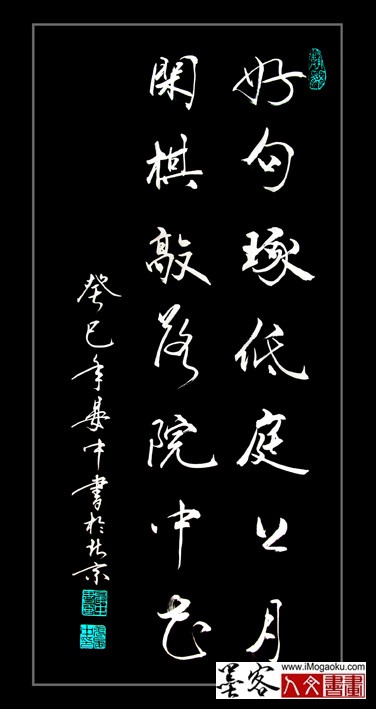 好句琢低庭上月
閑棋敲落院中花
癸巳年中書於北京
墨客
www.iMogaoku.com
人文書畫